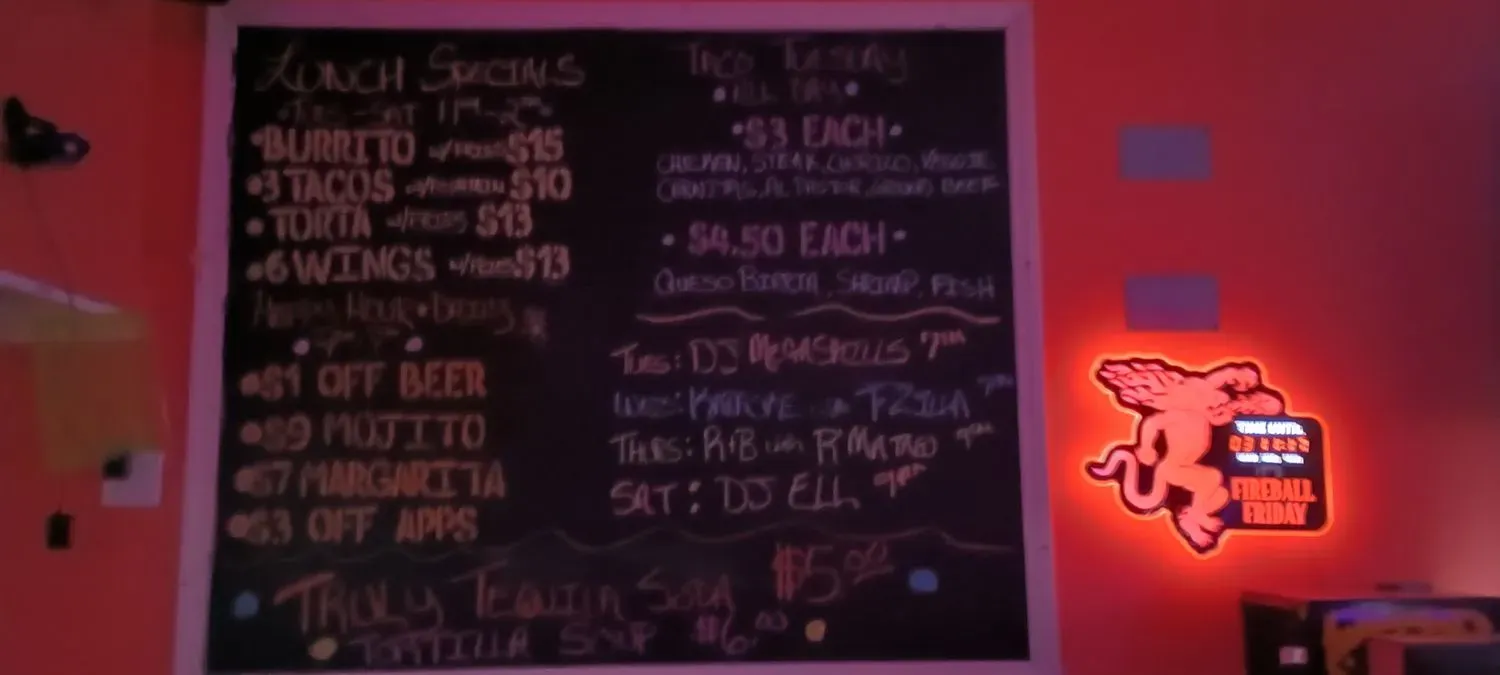 LUNCH SPECIALS
TUES-SAT 11AM-2PM
•BURRITO W/FRIES $15
•3 TACOS $10
•TORTA W/FRIES $13
•6 WINGS W/FRIES $13
HAPPY HOUR
•$1 OFF BEER
•$9 MOJITO
•$7 MARGARITA
•$3 OFF APPS
TACO TUESDAY
•ALL DAY•
•$3 EACH•
CHICKEN, STEAK, CHORIZO, VEGGIE
CARNITAS, AL PASTOR, GROUND BEEF
•$4.50 EACH•
QUESO BIRRIA, SHRIMP, FISH
TUES: DJ MEGASKILLS 7PM
WED: TZILLA 7PM
THURS: R+B WITH R'MATTEO 9PM
SAT: DJ ELL 9PM
TRULY TEQUILA SODA $5.00
TORTILLA SOUP $6.00
TIME UNTIL
FIREBALL
FRIDAY